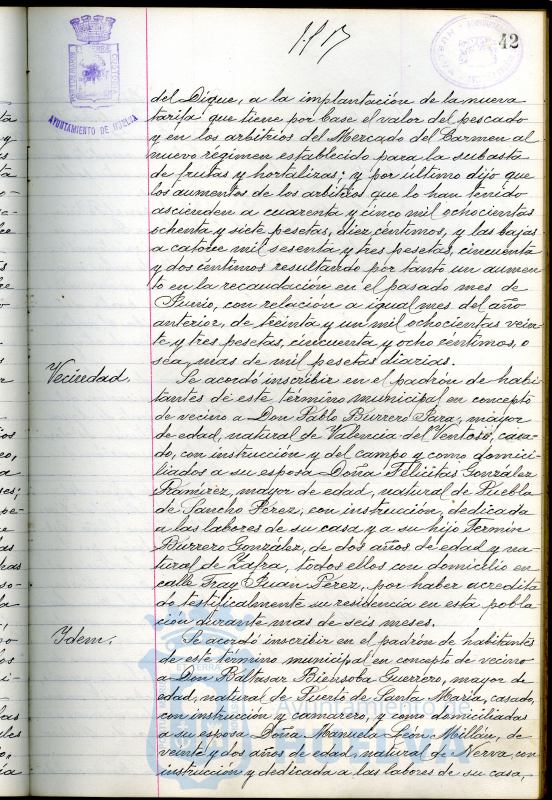 42
AYUNTAMIENTO DE HUELVA
del Dique, a la implantación de la nueva
tarifa que tiene por base el valor del pescado
y en los arbitrios del Mercado del Carmen al
nuevo régimen establecido para la subasta
de frutas y hortalizas; y por ultimo dijo que
los aumentos de los arbitrios que lo han tenido
ascienden a cuarenta y cinco mil ochocientas
ochenta y siete pesetas, diez céntimos, y las bajas
a catorce mil sesenta y tres pesetas, cincuenta
y dos céntimos resultando por tanto un aumen
to en la recaudación en el pasado mes de
Junio, con relación a igual mes del año
anterior, de treinta y un mil ochocientas vein
te y tres pesetas, cincuenta y ocho céntimos, o
sea, mas de mil pesetas diarias.
Vecindad.
Se acordó inscribir en el padrón de habi
tantes de este término municipal en concepto
de vecino a Don Pablo Burrero Jara, mayor
de edad, natural de Valencia del Ventoso, casa
do, con instrucción y del campo y como domici
liados a su esposa Doña Felicitas González
Ramírez, mayor de edad, natural de Puebla
de Sancho Pérez, con instrucción, dedicada
a las labores de su casa y a su hijo Fermín
Burrero González, de dos años de edad y na
tural de Zafra, todos ellos con domicilio en
calle Fray Juan Pérez, por haber acredita
do testificalmente su residencia en esta pobla
ción durante mas de seis meses.
Idem.
Se acordó inscribir en el padrón de habitantes
de este término municipal en concepto de vecino
a Don Balthasar Biensoba Guerrero, mayor de
edad, natural de Puerto de Santa María, casado,
con instrucción y camarero, y como domiciliadas
a su esposa Doña Manuela León Millán, de
veinte y dos años de edad, natural de Nerva con
instrucción y dedicada a las labores de su casa,
Ayuntamiento de
HUELVA